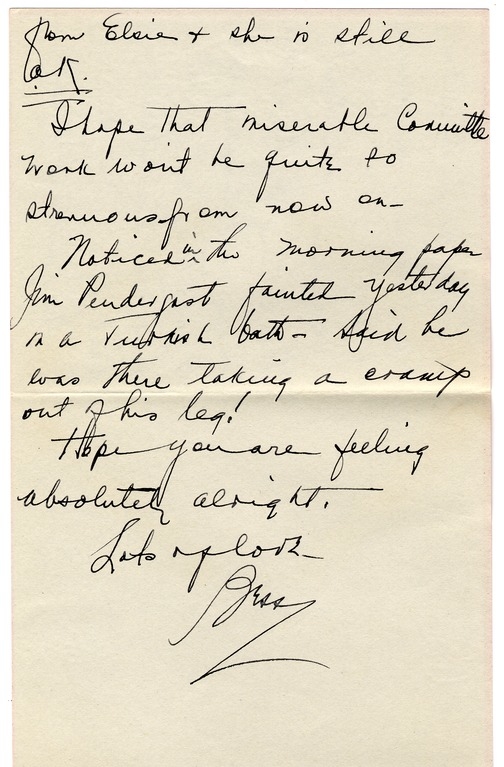 from Elsie & she is still
O.K.
I hope that miserable Committee
work won't be quite so
strenuous from now on—
Noticed in the morning paper
Jim Pendergast fainted yesterday
in a Turkish bath— Said he
was there taking a cramp
out of his leg!
Hope you are feeling
absolutely alright.
Lots of love—
Bess